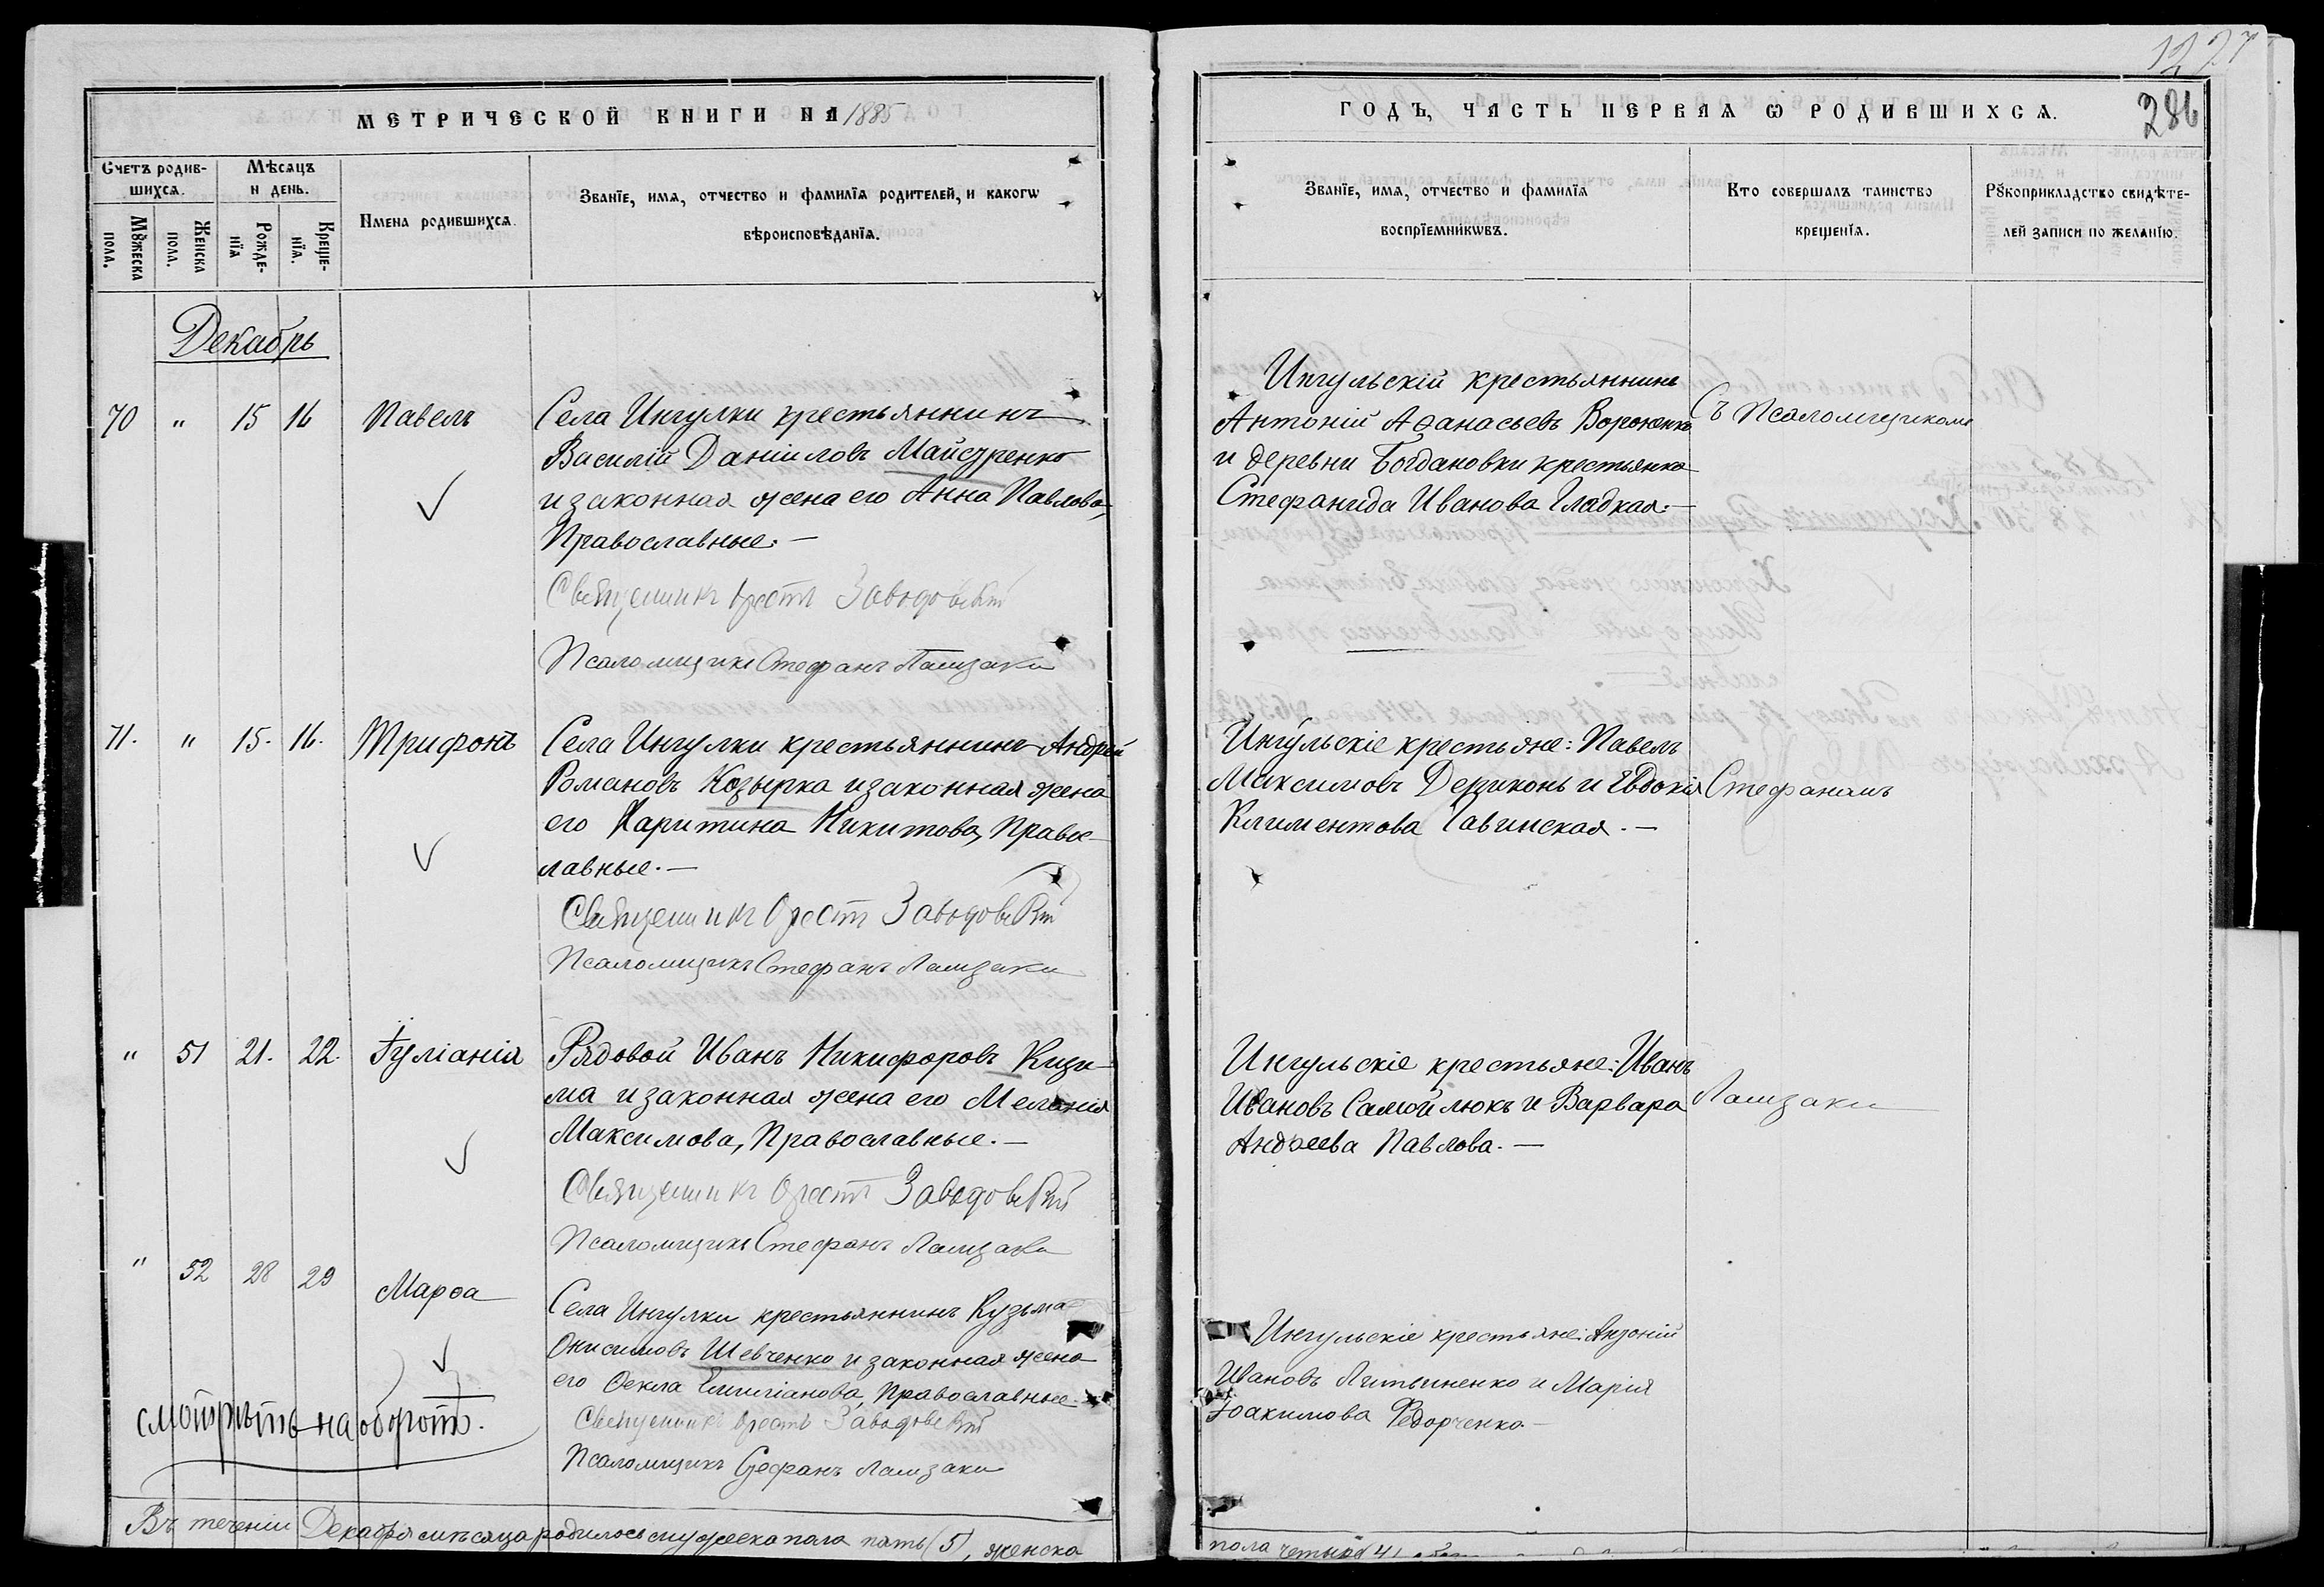 МЕТРИЧЕСКОЙ КНИГИ НА 1885
Счетъ родив-
шихся.
Мѣсяцъ
и день.
Мꙋжеска
пола.
Женска
пола.
Рожде-
нїя
Креще-
нїя.
Имена родившихся.
Званїе, имя, отчество и фамилїя родителей, и какогѡ
вѣроисповѣданїя.
Декабрь
70 " 15 16 Павелъ
Села Ингулки крестьянинъ
Василій Даніиловъ Майстренко
и законная жена его Анна Павлова,
Православные.—
Священникъ Орестъ
Псаломщикъ Стефанъ
71. " 15. 16. Трифонъ
Села Ингулки крестьянинъ Андрей
Романовъ Козырка и законная жена
его Харитина Никитова, Правос-
лавные.—
Священникъ Орестъ
Псаломщикъ Стефанъ
" 51 21. 22. Іуліанія
Рядовой Иванъ Никифоровъ Кизи-
ма и законная жена его Меланія
Максимова, Православные.—
Священникъ Орестъ
Псаломщикъ Стефанъ
" 52 28 29 Марѳа
Села Ингулки крестьянинъ Кузьма
Онисимовъ Шевченко и законная жена
его Ѳекла Емиліанова, Православные.
Священникъ Орестъ
Псаломщикъ Стефанъ
смотрѣть на оборотѣ.
Въ теченіи Декабря мѣсяца родилось мужеска пола пять (5), женска
1227
286
ГОДЪ, ЧАСТЬ ПЕРВАЯ Ѡ РОДИВШИХСЯ.
Званїе, имя, отчество и фамилїя
воспрїемникѡвъ.
Кто совершалъ таинство
крещенїя.
Рꙋкоприкладство свидѣте-
лей записи по желанїю.
Ингульскій крестьянинъ
Антоній Аѳанасьевъ Вороненко
и деревни Богдановки крестьянка
Стефанида Иванова Гладкая.—
Съ Псаломщикомъ
Ингульскіе крестьяне: Павелъ
Максимовъ и Евдокія
Климентова
Стефаномъ
Ингульскіе крестьяне: Иванъ
Ивановъ Самойлюкъ и Варвара
Андреева Павлова.—
Ингульскіе крестьяне: Антоній
Ивановъ Литвиненко и Марія
Іоакимова Федорченко.—
пола четыре (4)